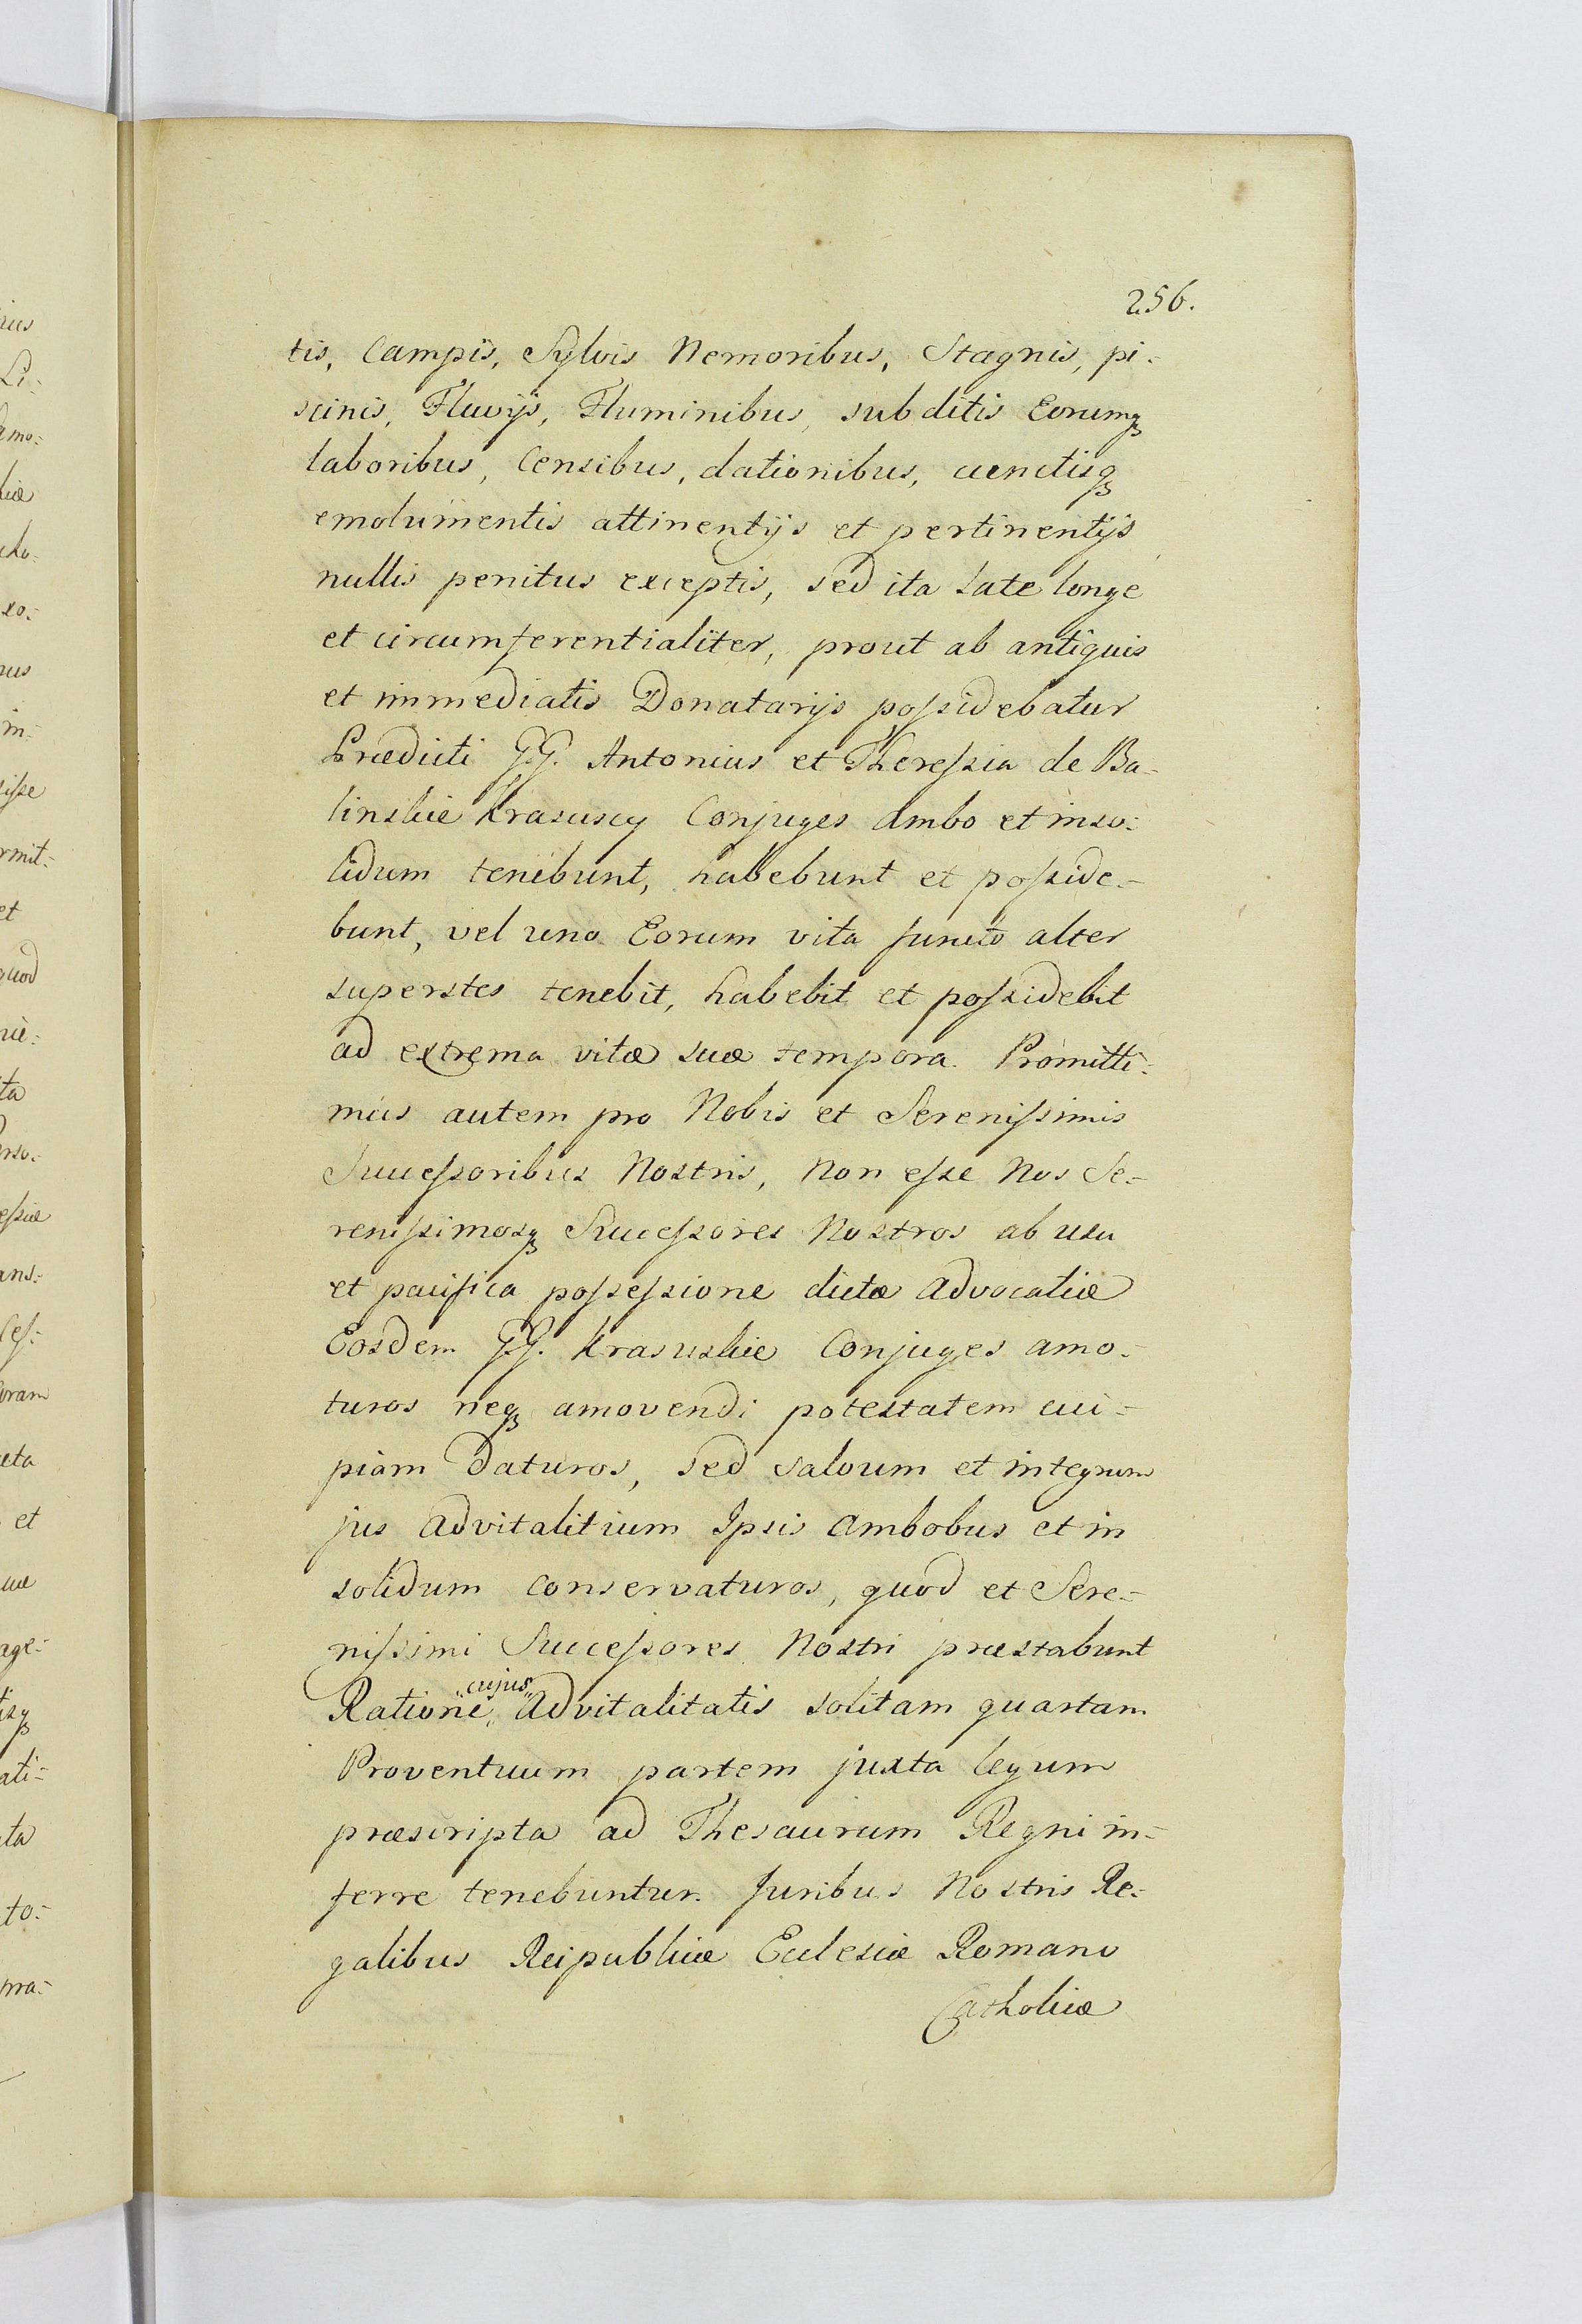 256.
tis, Campis, Sylvis Nemoribus, Stagnis, pi=
scinis, Fluvijs, Fluminibus, subditis Eorumq3
laboribus, Censibus, dationibus, cunctisq3
emolumentis attinentijs et pertinentijs
nullis penitus exceptis, sed ita late longe
et circumferentialiter, prout ab antiquis
et immediatis Donatarijs poſsidebatur
Prædicti G.G. Antonius et Thereſsia de Ba=
linskie Krasuscy Conjuges ambo et inso=
lidum tenebunt, habebunt et poſside=
bunt, vel uno Eorum vita functo alter
superstes tenebit, habebit et poſsidebit
ad extrema vitæ suæ tempora. Promitti=
mus autem pro Nobis et Sereniſsimis
Succeſsoribus Nostris, Non eſse Nos Se=
reniſsimosq3 Succeſsores Nostros ab usu
et pacifica poſseſsione dictæ Advocatiæ
Eosdem G.G. Krasuskie Conjuges amo=
turos neq3 amovendi potestatem cui=
piam Daturos, sed salvum et integrum
jus Advitalitium Ipsis Ambobus et in
solidum conservaturos, quod et Sere=
niſsimi Succeſsores Nostri præstabunt
cujus
Ratione Advitalitatis solitam quartam
Proventuum partem juxta legum
præscripta ad Thesaurum Regni in=
ferre tenebuntur. Juribus Nostris Re=
galibus Reipublicæ Ecclesiæ Romano
Catholicæ